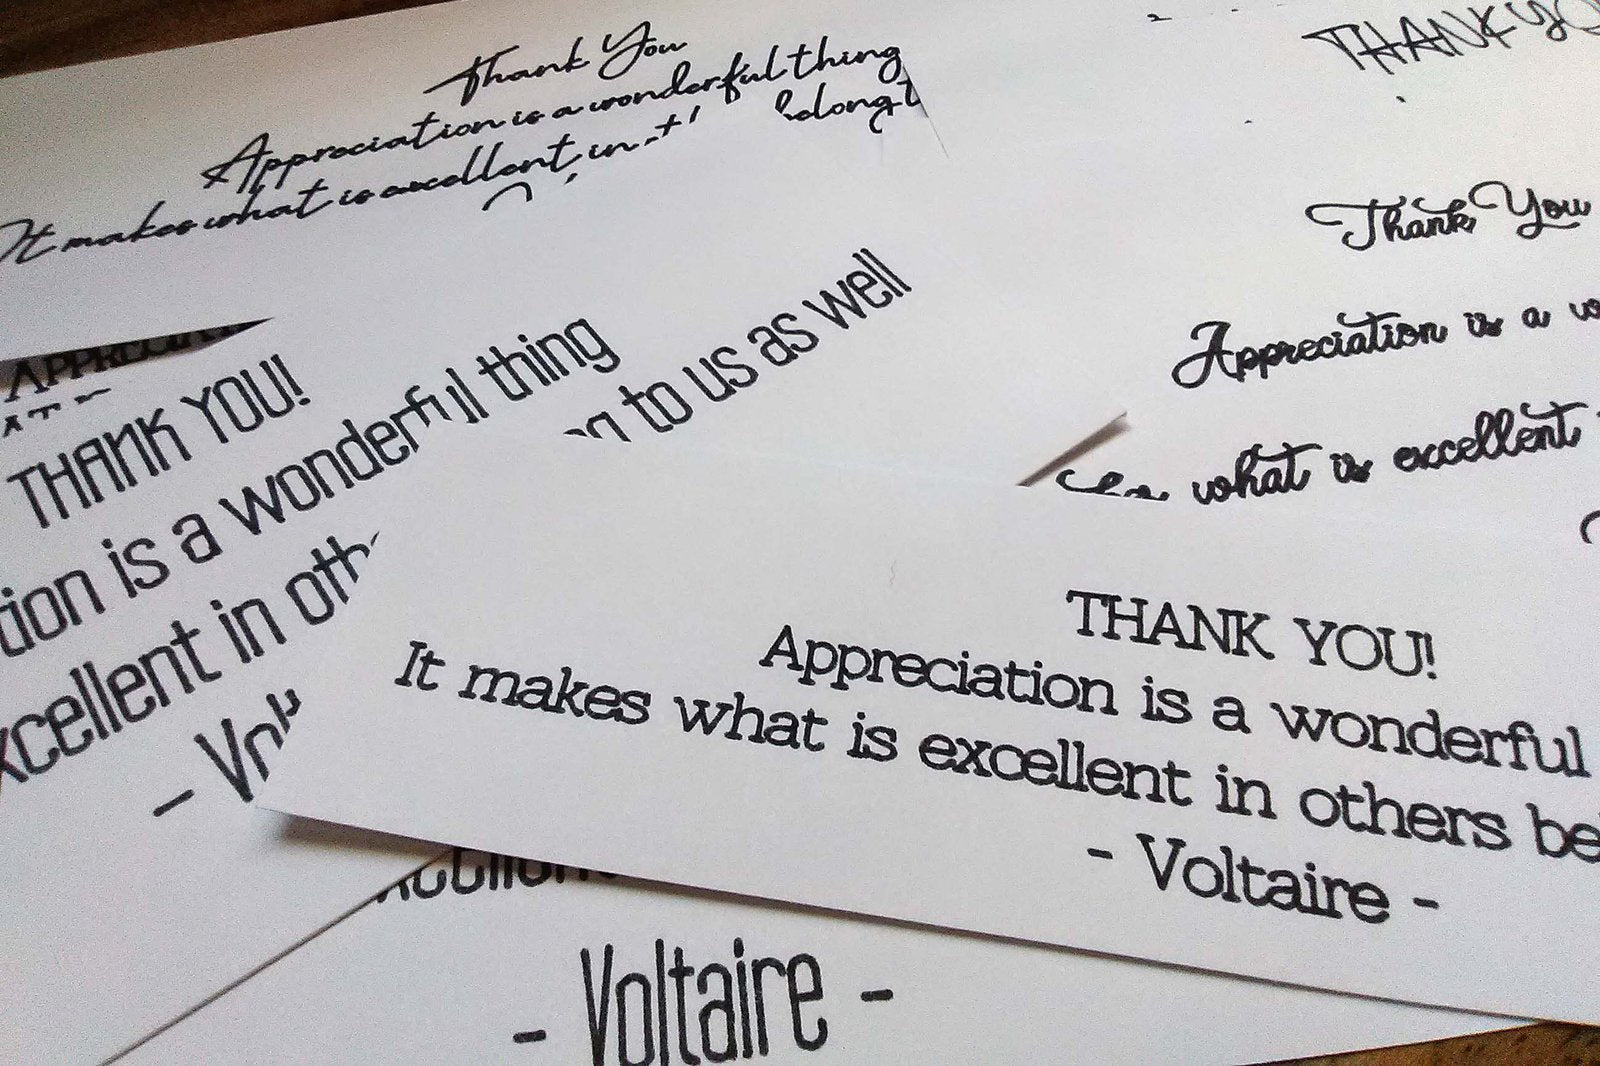 Thank You
Appreciation is a wonderful thing
It makes what is excellent in
belong t
THANK YOU
Thank You
Appreciation is a
what is excellent
APPRECIAT
THANK YOU!
tion is a wonderful thing
to us as well
xcellent in oth
- Volt
THANK YOU!
Appreciation is a wonderful
It makes what is excellent in others be
- Voltaire -
- Voltaire -